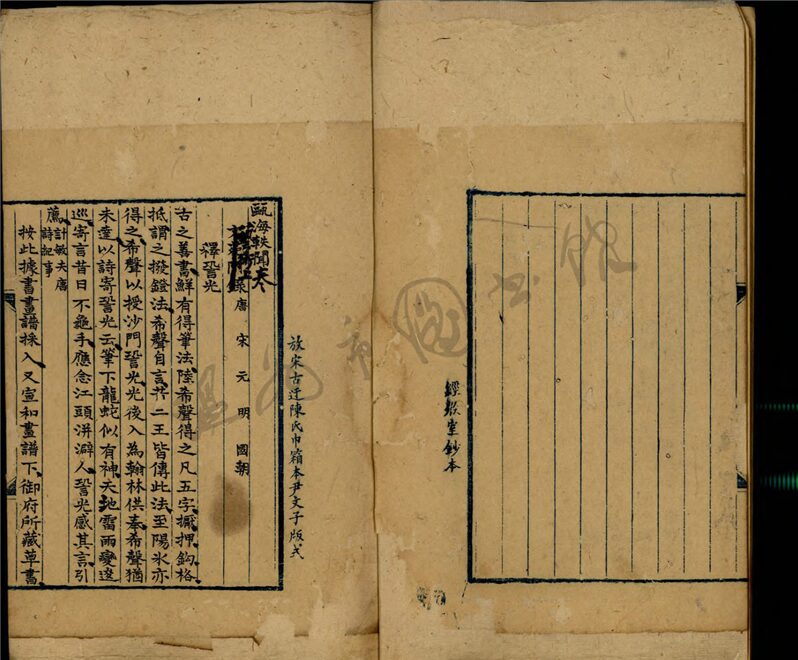 經微室鈔本
放宋古迂陳氏巾箱本尹文子版式
甌海軼聞
唐 宋 元 明 國朝
釋䛒光
古之善書鮮有得筆法陸希聲得之凡五字擫押鈎格
抵謂之撥鐙法希聲自言昔二王皆傳此法至陽冰亦
得之希聲以授沙門䛒光光後入為翰林供奉希聲猶
未達以詩寄䛒光云筆下龍蛇似有神天地雷雨變逡
巡寄言昔日不龜手應念江頭洴澼人䛒光感其言引
薦計敏夫唐詩紀事
按此據書畫譜採入又宣和畫譜下御府所藏草書